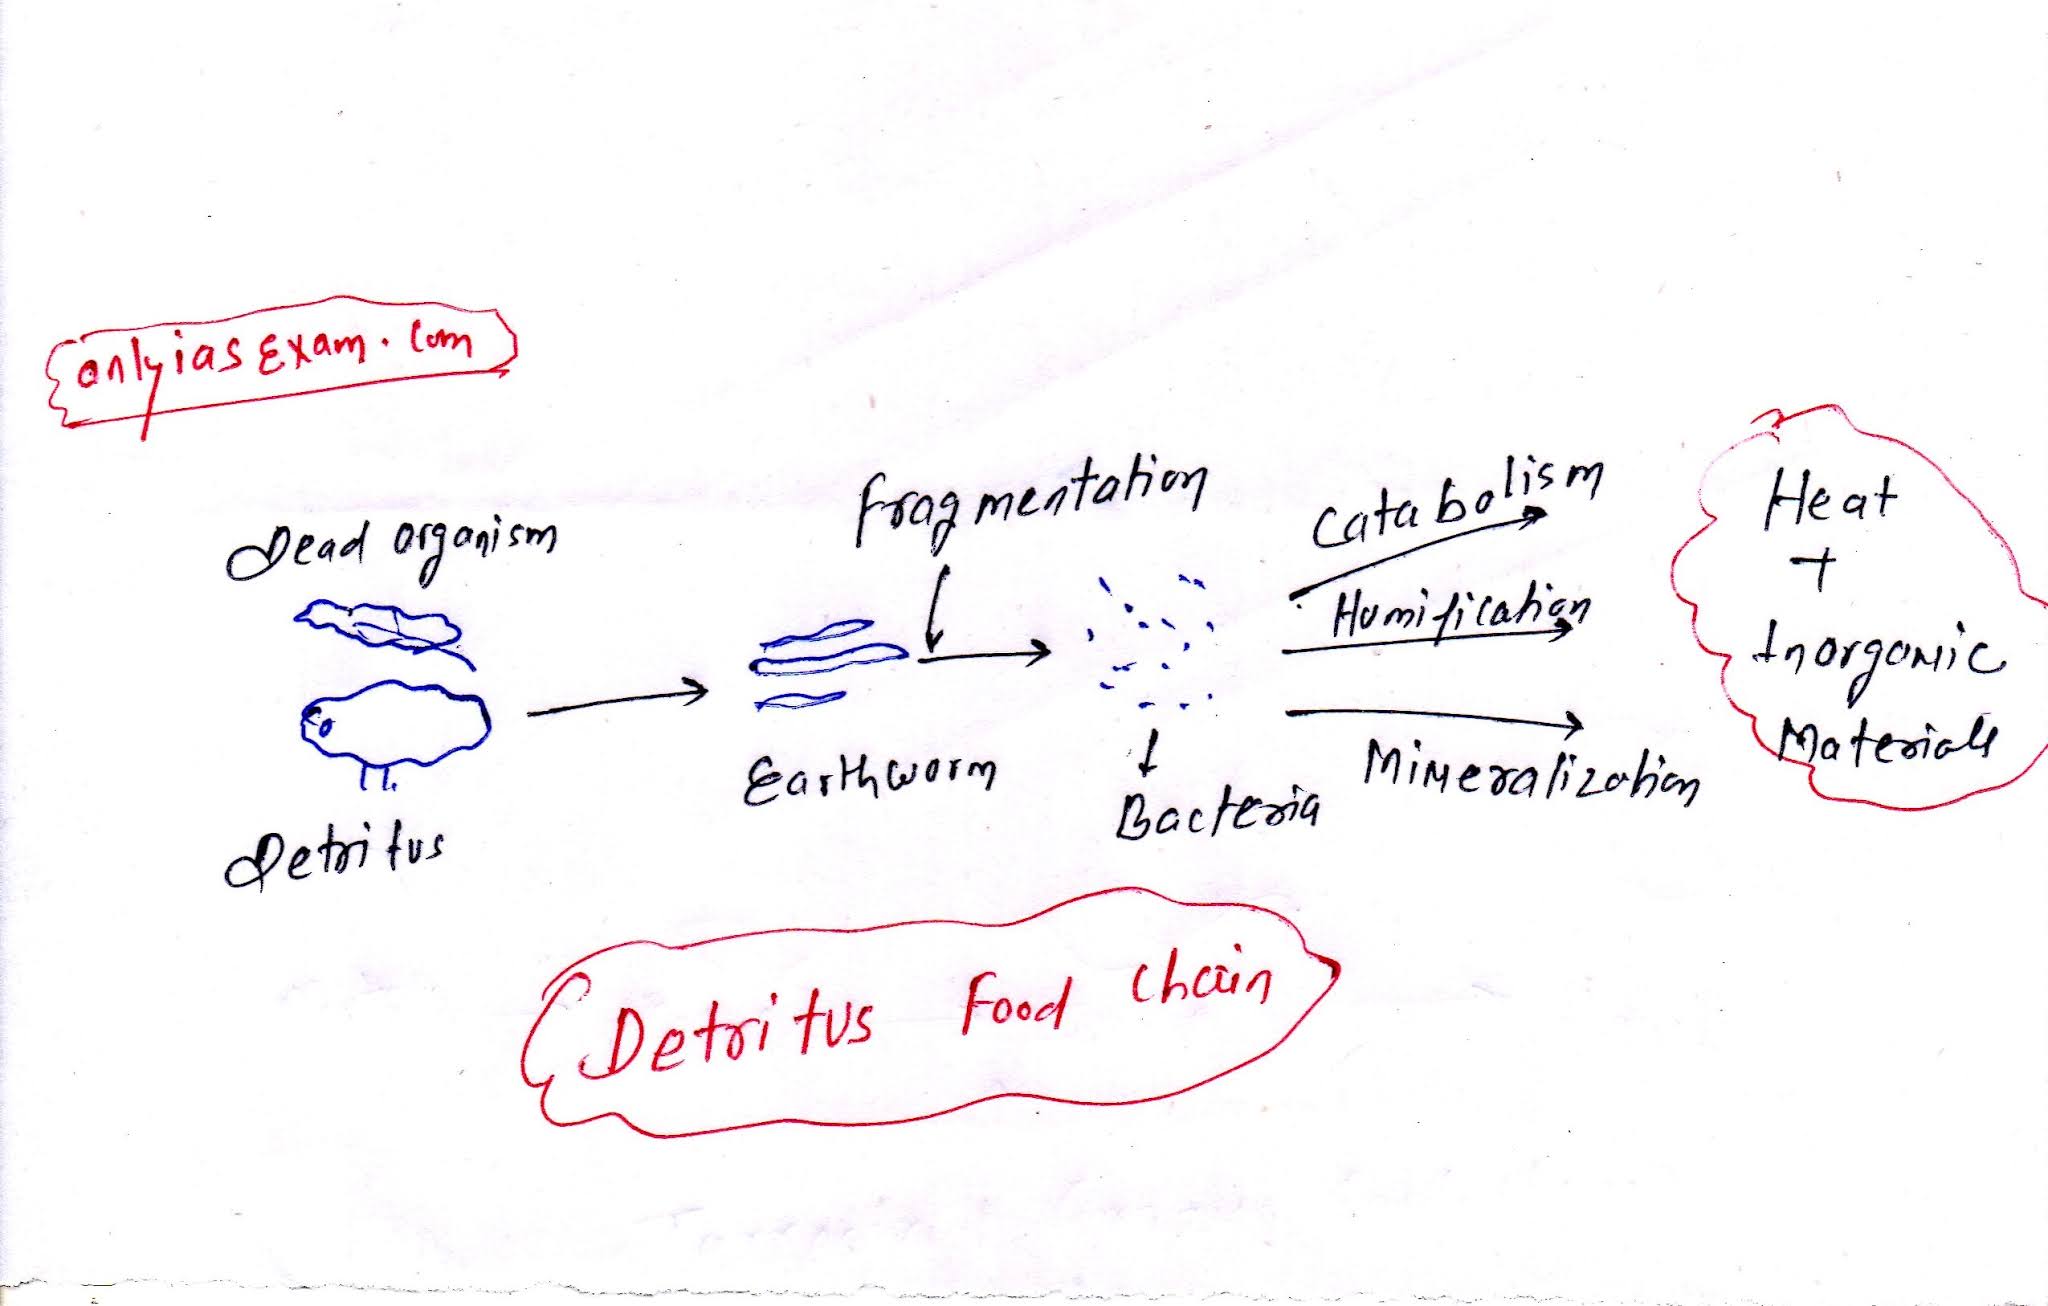 onlyiasExam.com
Dead organism
Detritus
Earthworm
fragmentation
Bacteria
Catabolism
Humification
Mineralization
Heat
+
Inorganic
Materials
Detritus Food Chain